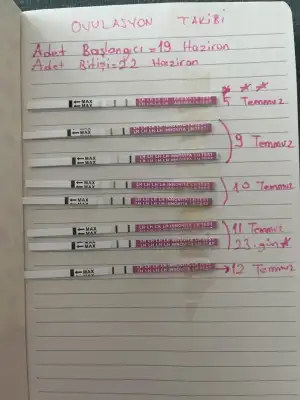 OVULASYON TAKİBİ
Adet Başlangıcı=19 Haziran
Adet Bitişi=22 Haziran
MAX
5 Temmuz
MAX
9 Temmuz
MAX
MAX
10 Temmuz
MAX
MAX
11 Temmuz
MAX
23. gün
MAX
12 Temmuz